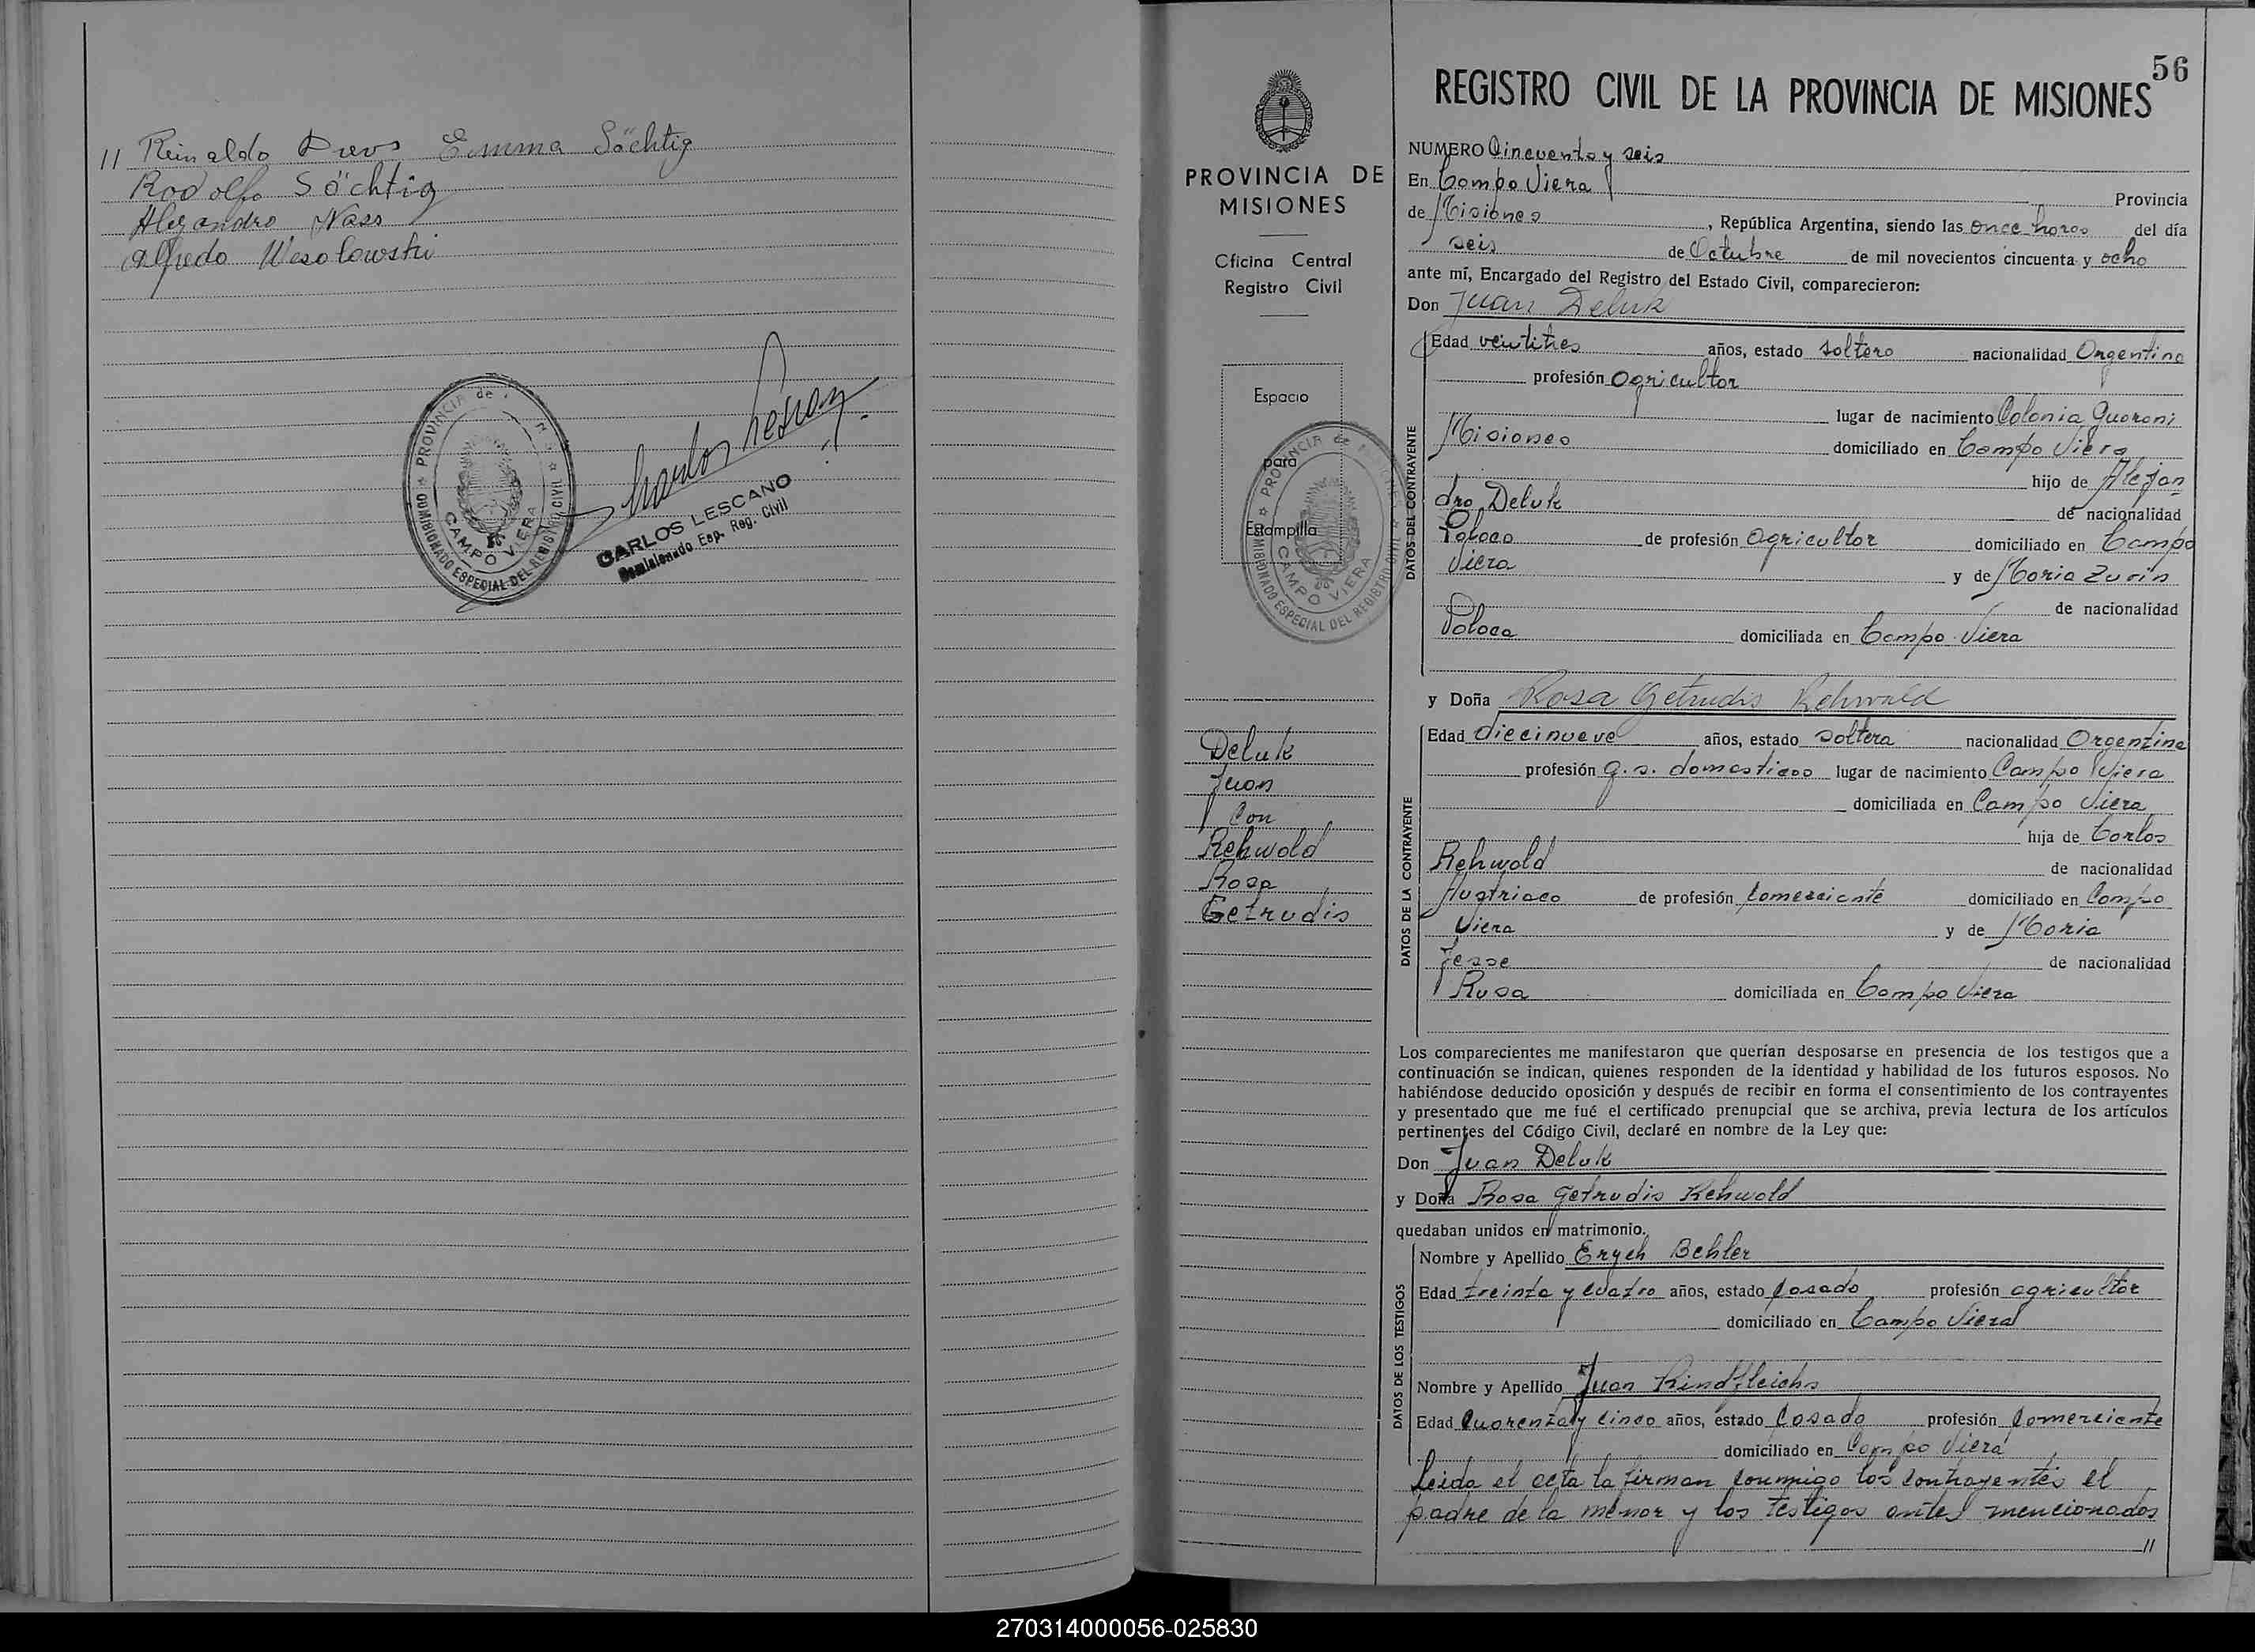 11 Reinaldo Drews Emma Söchtig
Rodolfo Söchtig
Alejandro Nass
Alfredo Wesolowski
PROVINCIA de
COMISIONADO ESPECIAL DEL REGISTRO CIVIL
CAMPO VIERA
Carlos Lescano
CARLOS LESCANO
Comisionado Esp. Reg. Civil
PROVINCIA DE
MISIONES
Oficina Central
Registro Civil
Espacio
para
Estampilla
PROVINCIA de
COMISIONADO ESPECIAL DEL REGISTRO CIVIL
CAMPO VIERA
Deluk
Juan
Con
Rehwald
Rosa
Getrudis
56
REGISTRO CIVIL DE LA PROVINCIA DE MISIONES
NUMERO Cincuenta y seis
En Campo Viera Provincia
de Misiones, República Argentina, siendo las once horas del día
seis de Octubre de mil novecientos cincuenta y ocho
ante mí, Encargado del Registro del Estado Civil, comparecieron:
Don Juan Deluk
DATOS DEL CONTRAYENTE
Edad veintitres años, estado soltero nacionalidad Argentina
profesión Agricultor
lugar de nacimiento Colonia Guarani
Misiones domiciliado en Campo Viera
hijo de Alejan
dro Deluk de nacionalidad
Polaca de profesión Agricultor domiciliado en Campo
Viera y de Maria Zurin
de nacionalidad
Polaca domiciliada en Campo Viera
y Doña Rosa Getrudis Rehwald
DATOS DE LA CONTRAYENTE
Edad diecinueve años, estado soltera nacionalidad Argentina
profesión q.s. domesticos lugar de nacimiento Campo Viera
domiciliada en Campo Viera
hija de Carlos
Rehwald de nacionalidad
Austriaco de profesión Comerciante domiciliado en Campo
Viera y de Maria
Jesse de nacionalidad
Rusa domiciliada en Campo Viera
Los comparecientes me manifestaron que querían desposarse en presencia de los testigos que a
continuación se indican, quienes responden de la identidad y habilidad de los futuros esposos. No
habiéndose deducido oposición y después de recibir en forma el consentimiento de los contrayentes
y presentado que me fué el certificado prenupcial que se archiva, previa lectura de los artículos
pertinentes del Código Civil, declaré en nombre de la Ley que:
Don Juan Deluk
y Doña Rosa Getrudis Rehwald
quedaban unidos en matrimonio.
DATOS DE LOS TESTIGOS
Nombre y Apellido Erych Behler
Edad treinta y cuatro años, estado Casado profesión agricultor
domiciliado en Campo Viera
Nombre y Apellido Juan Rindfleichs
Edad Cuarenta y Cinco años, estado Casado profesión Comerciante
domiciliado en Campo Viera
Leida el acta la firman conmigo los contrayentes el
padre de la menor y los testigos antes mencionados
//
270314000056-025830